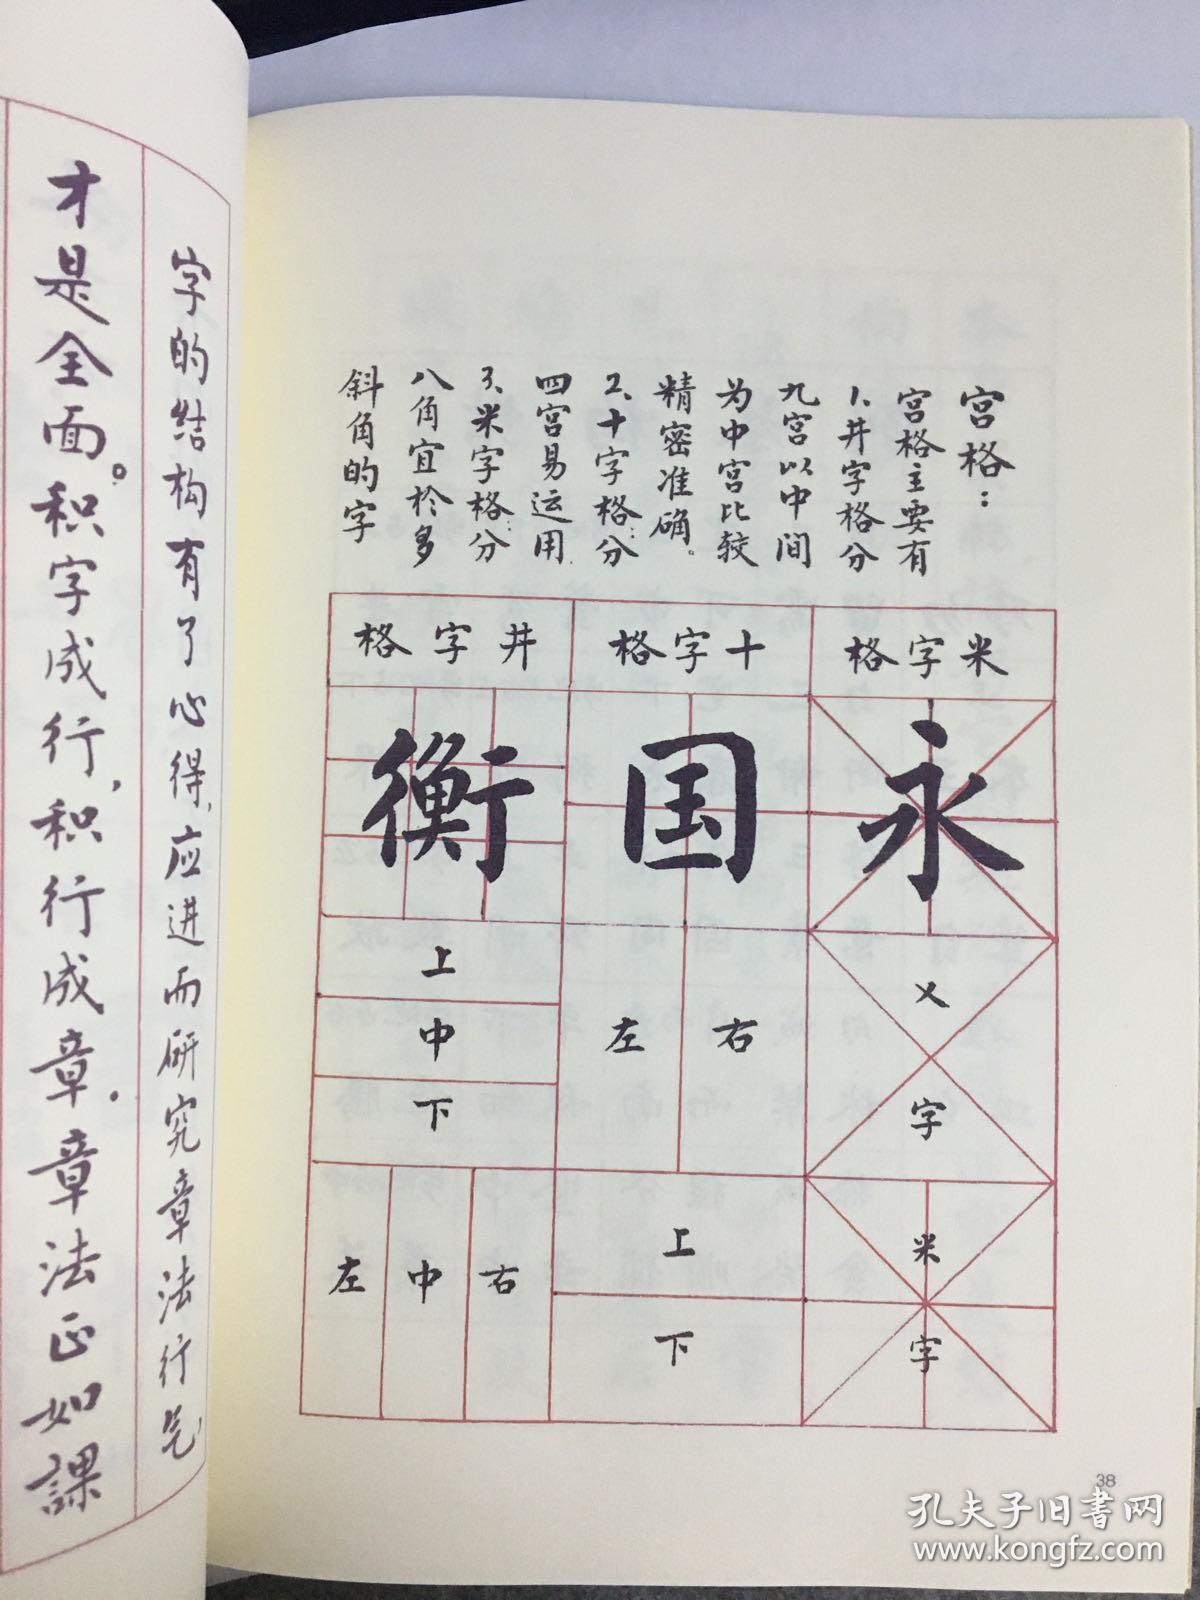 宫格：
宫格主要有
1、井字格分
九宫以中间
为中宫比较
精密准确。
2、十字格：分
四宫易运用
3、米字格：分
八角宜於多
斜角的字
米字格
十字格
井字格
永
国
衡
乂
字
左
右
上
中
下
米
字
上
下
左
中
右
38
字的结构有了心得，应进而研究章法行气
才是全面。积字成行，积行成章。章法正如課
孔夫子旧书网
www.kongfz.com